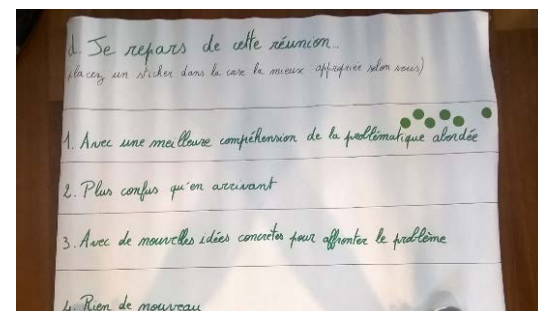 d. Je repars de cette réunion...
placez un sticker dans la case la mieux appropriée selon vous)
1. Avec une meilleure compréhension de la problématique abordée
2. Plus confus qu'en arrivant
3. Avec de nouvelles idées concrètes pour affronter le problème
4. Rien de nouveau